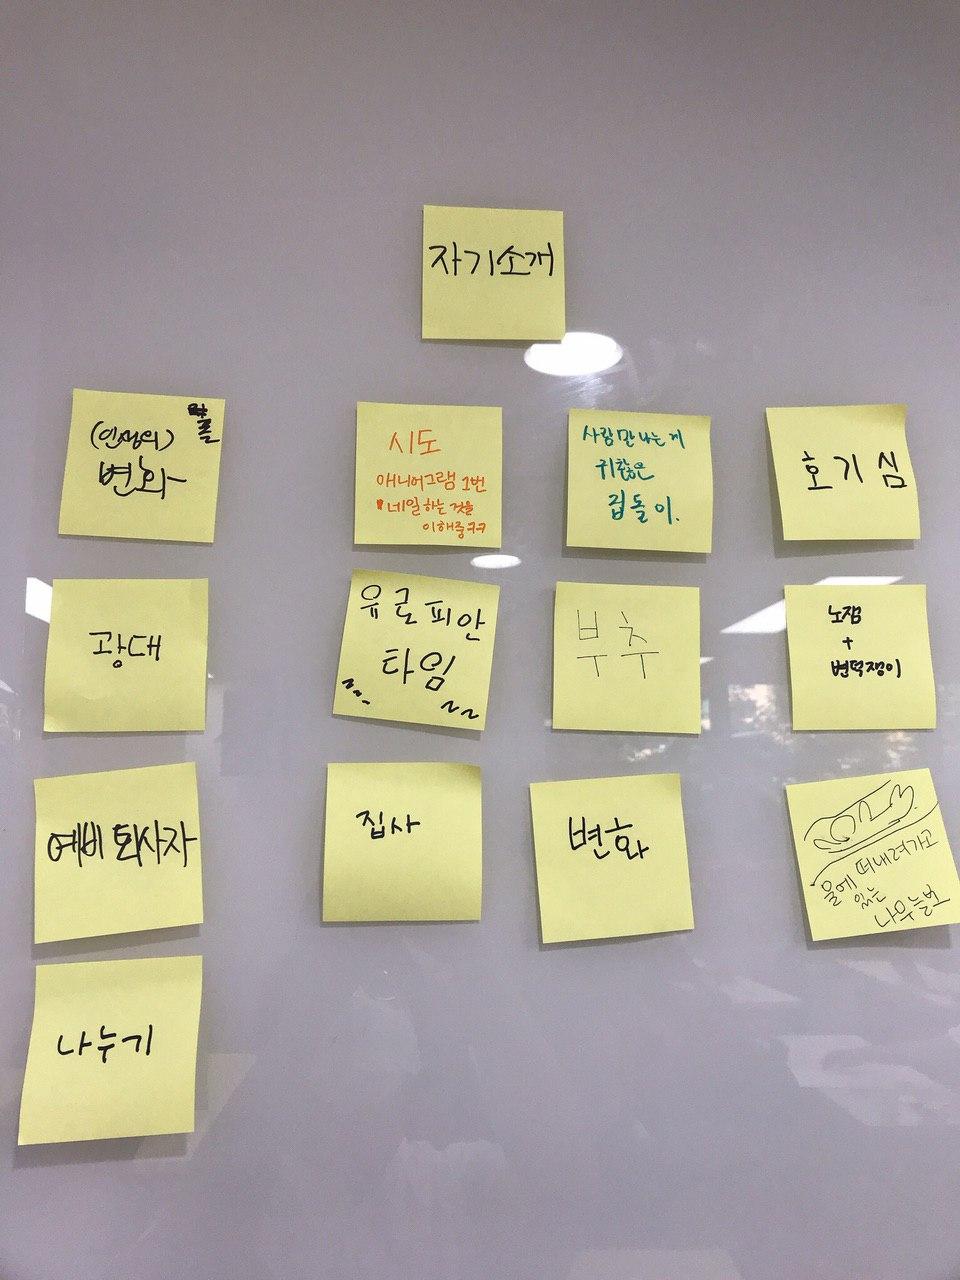 자기소개
(인생의)
변화
시도
애니어그램 1번
네일하는 것을
이해중ㅋㅋ
사람 만나는 게
귀찮은
집돌이.
호기심
광대
유로피안
타임
부추
노잼
+
변덕쟁이
예비 퇴사자
집사
변화
물에 떠내려가고
있는
나무늘보
나누기